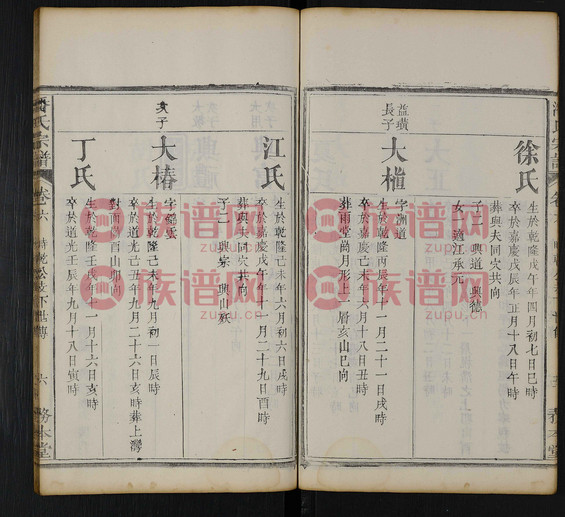 徐氏
生於乾隆戊午年四月初七日巳時
卒於嘉慶戊辰年正月十八日午時
葬與夫同穴共向
子二 興道 興
女一 適江承元
益璜
長子
大
字淵道
生於乾隆丙辰年十一月二十一日戌時
卒於嘉慶己未年六月十八日丑時
葬雨堂尚月形上一層亥山巳向
江氏
生於乾隆己未年六月初六日戌時
卒於嘉慶戊午年十一月二十九日酉時
葬與夫同穴共向
子二 興 興
次子
大椿
字
生於乾隆己未年九月初一日辰時
卒於道光己丑年九月二十六日亥時葬上灣
對面 酉山卯向
丁氏
生於乾隆壬戌年十一月十六日亥時
卒於道光壬辰年九月十八日寅時
潘氏宗譜
卷六
六
務本堂
族谱网
族谱网